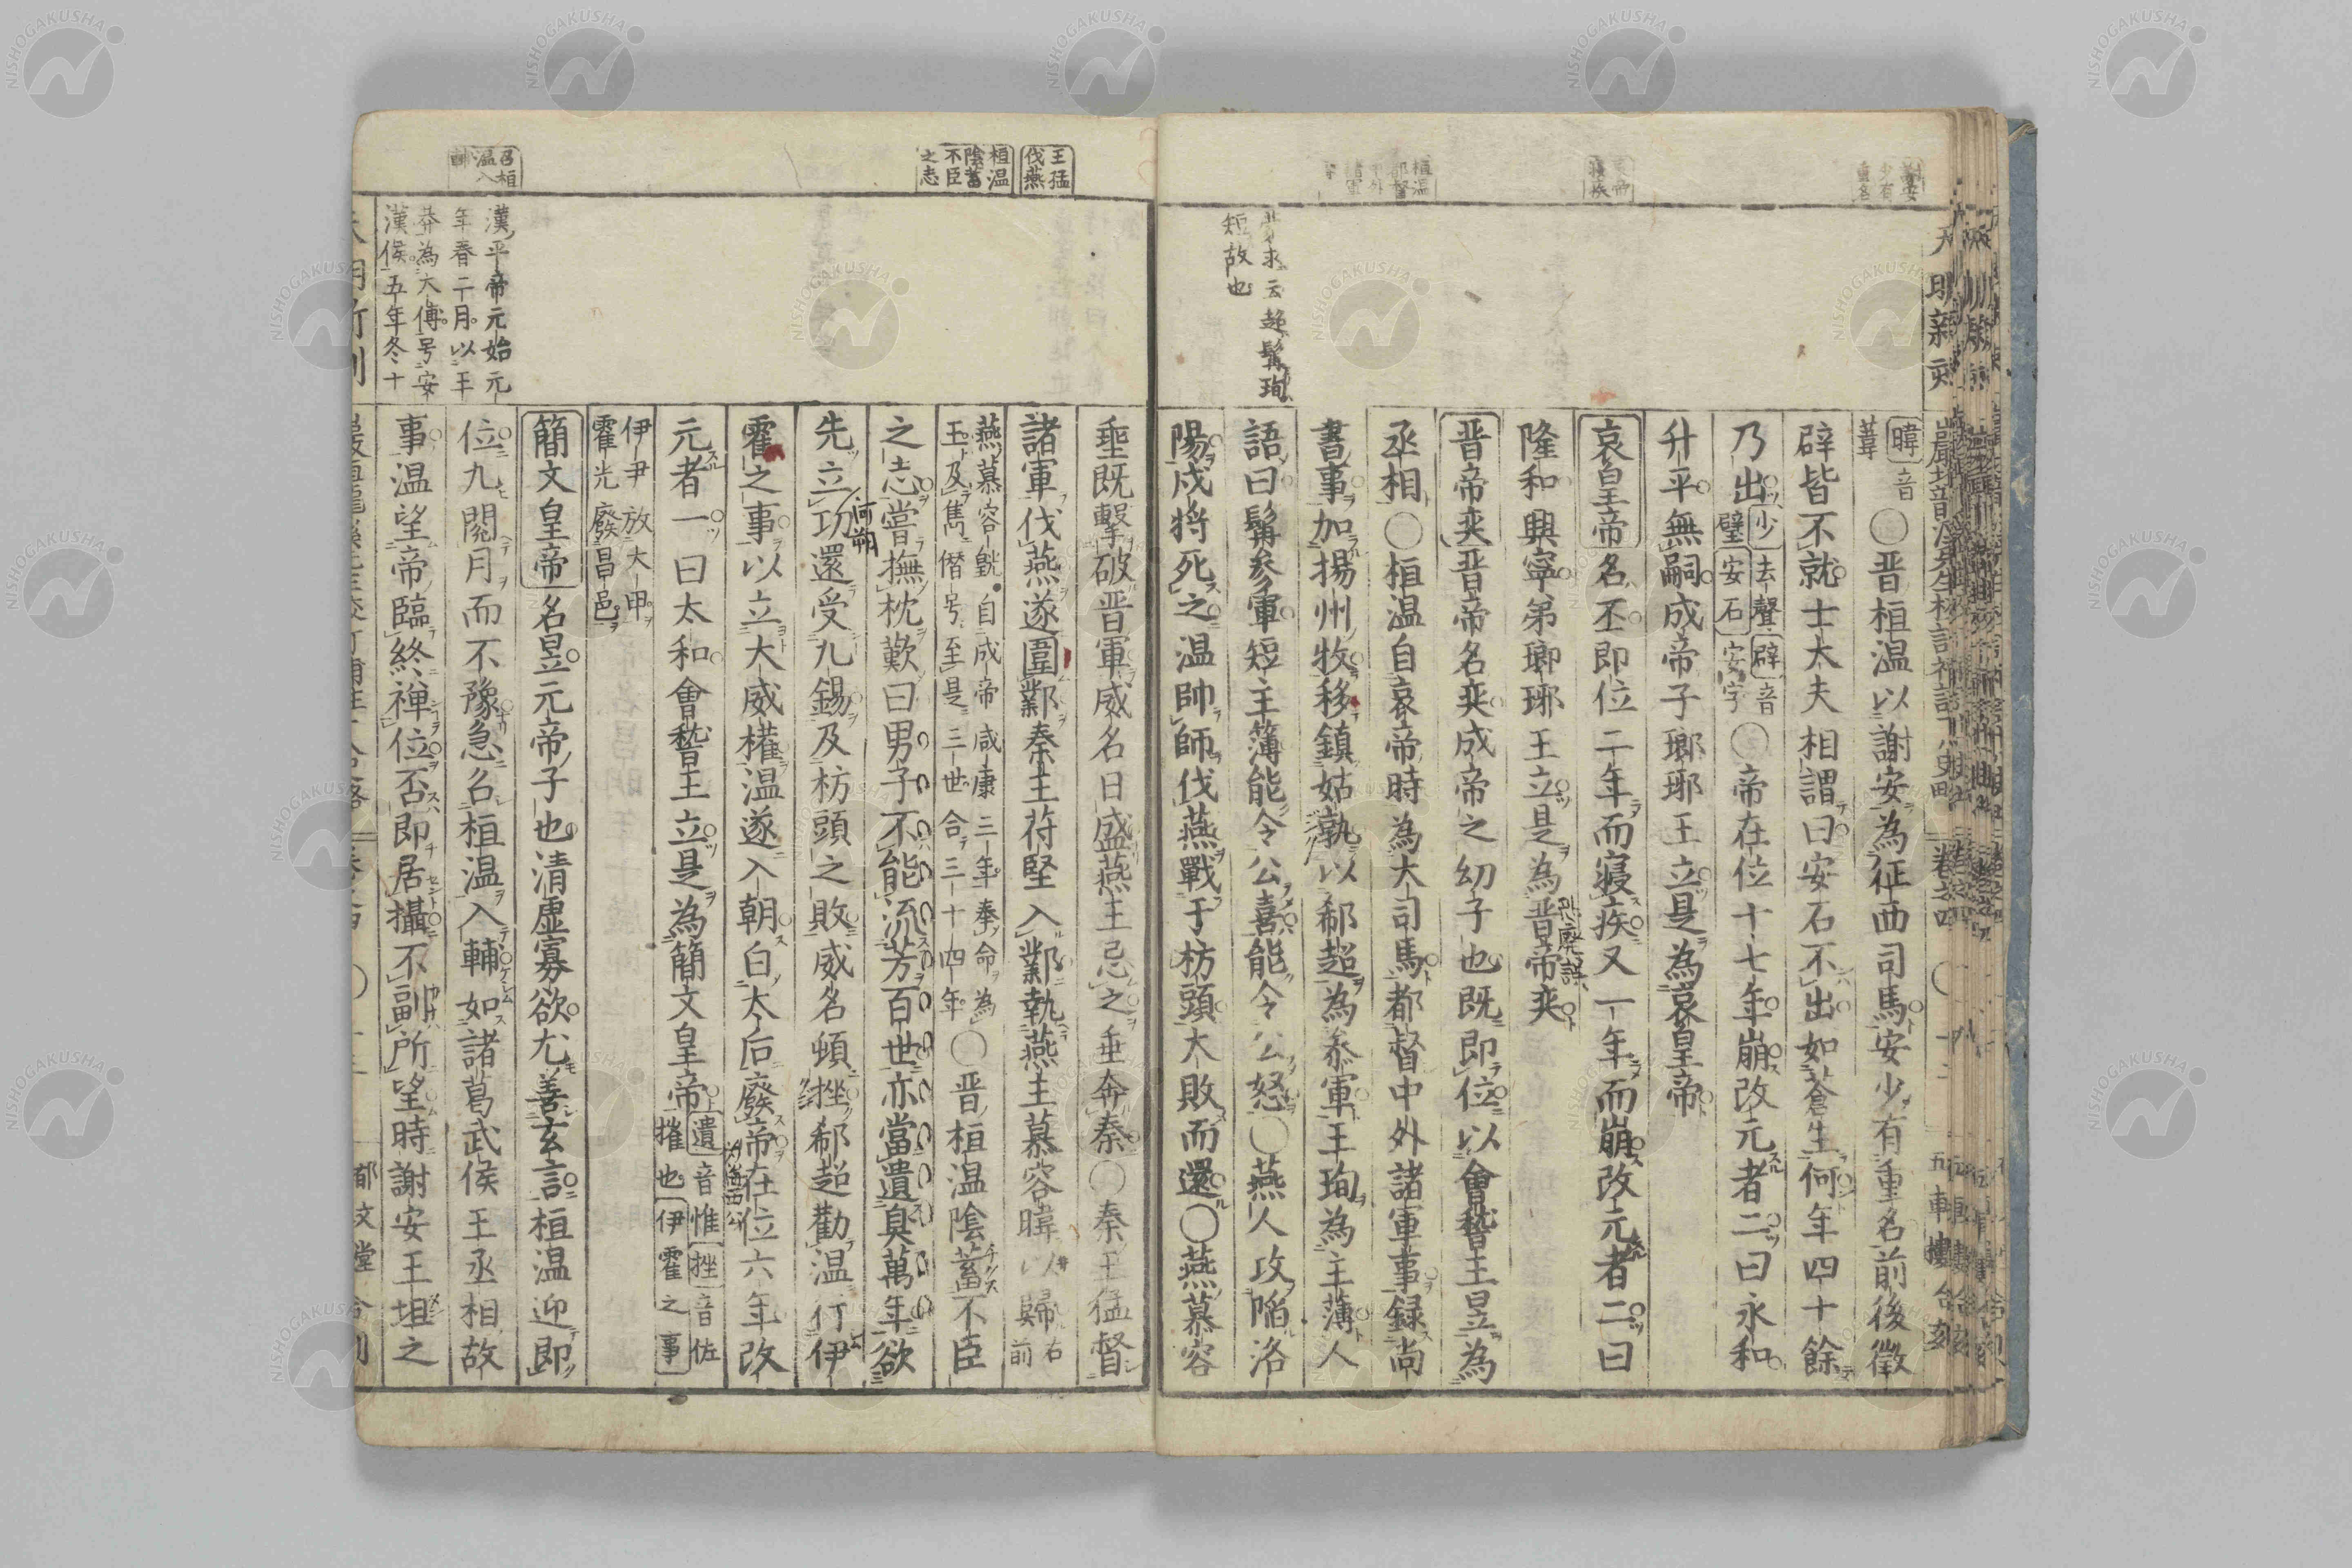 暐音
葺
○晋桓温以謝安為征西司馬安少有重名前後徵
辟皆不就士大夫相謂曰安石不出如蒼生何年四十餘
乃出少去聲辟音
璧安石安字
○帝在位十七年崩改元者二曰永和
升平無嗣成帝子瑯琊王立是為哀皇帝
哀皇帝名丕即位二年而寝疾又一年而崩改元者二曰
隆和興寧弟瑯琊王立是為晋帝奕
晋帝奕晋帝名奕成帝之幼子也既即位以會稽王昱為
丞相○桓温自哀帝時為大司馬都督中外諸軍事録尚
書事加揚州牧移鎮姑孰以郗超為参軍王珣為主薄人
語曰髯参軍短主簿能令公喜能令公怒○燕人攻陥洛
陽戍将死之温帥師伐燕戰于枋頭大敗而還○燕慕容
求云超髯珣
短故也
垂既擊破晋軍威名日盛燕王忌之垂奔秦○秦王猛督
諸軍伐燕遂圍鄴秦主苻堅入鄴執燕主慕容暐以歸右
前
燕慕容皝自成帝咸康三年奉命為
王及雋僣号至是三世合三十四年
○晋桓温陰蓄不臣
之志嘗撫枕歎曰男子不能流芳百世亦當遺臭萬年欲
先立功河朔還受九錫及枋頭之敗威名頓挫郗超勸温行伊
霍之事以立大威權温遂入朝白太后廢帝為海西公在位六年改
元者一曰太和會稽王立是為簡文皇帝遺音惟挫音佐
摧也伊霍之事
伊尹放大甲
霍光廢昌邑
簡文皇帝名昱元帝子也清虚寡欲尤善玄言桓温迎即
位九閲月而不豫急召桓温入輔如諸葛武侯王丞相故
事温望帝臨終禅位否即居攝不副所望時謝安王坦之
王猛
伐燕
桓温
陰蓄
不臣
之志
召桓
温入
輔
漢平帝元始元
年春二月以王
莽為大傅号安
漢侯五年冬十